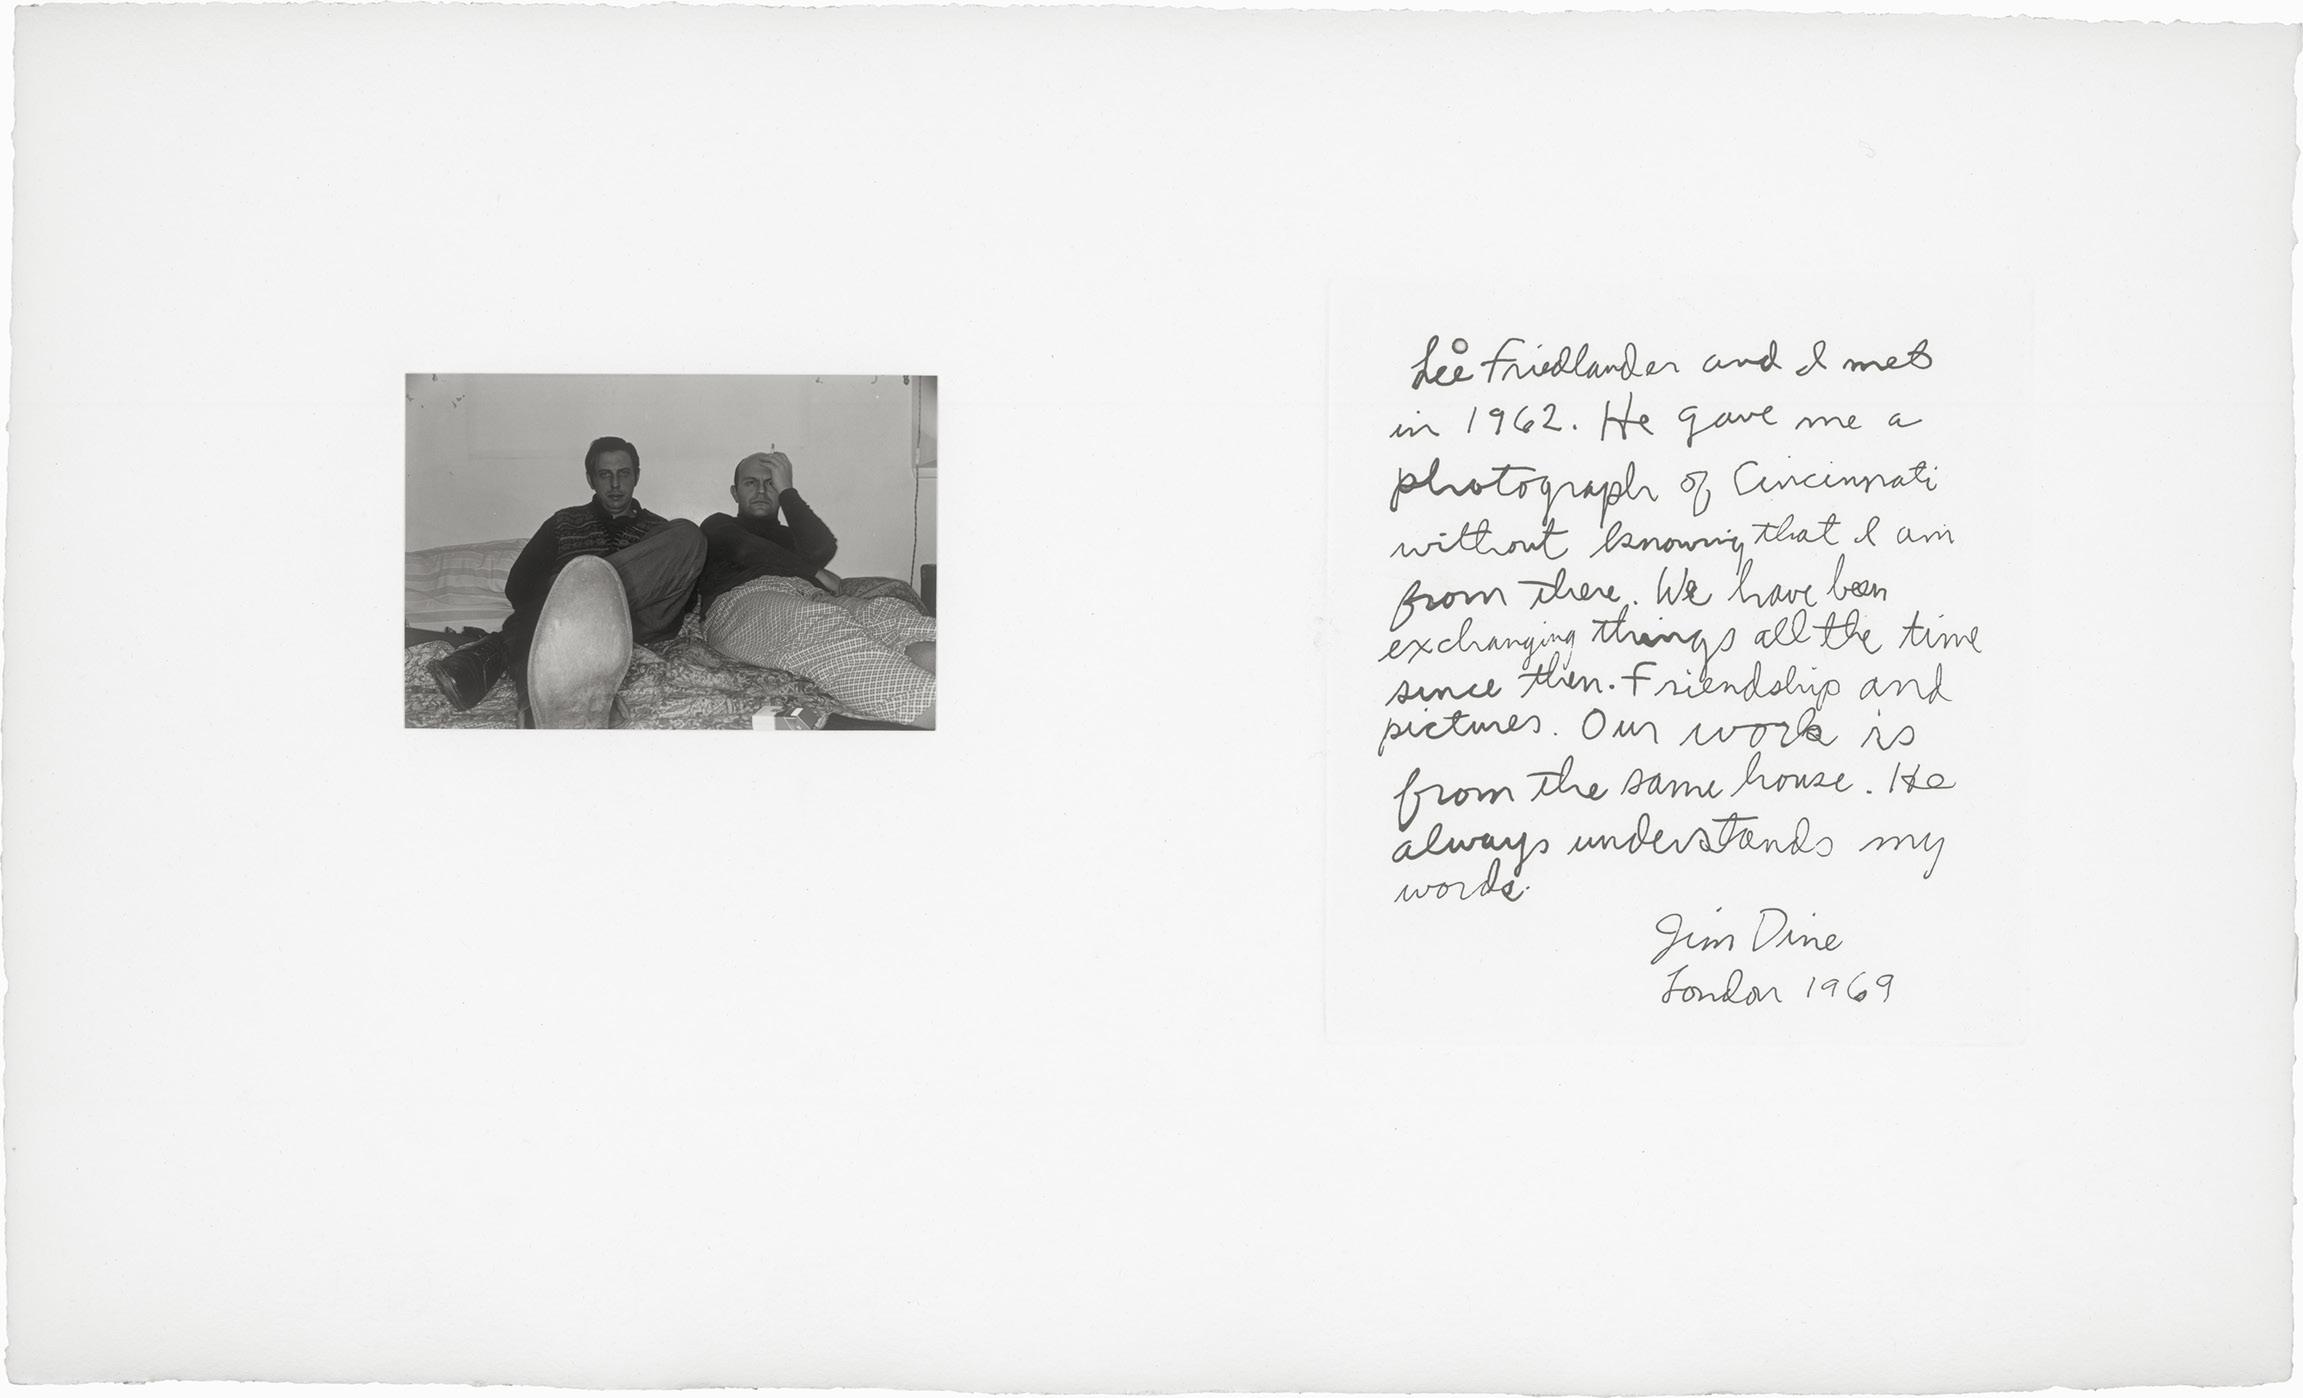 Lee Friedlander and I met
in 1962. He gave me a
photograph of Cincinnati
without knowing that I am
from there. We have been
exchanging things all the time
since then. Friendship and
pictures. Our work is
from the same house. He
always understands my
words.
Jim Dine
London 1969